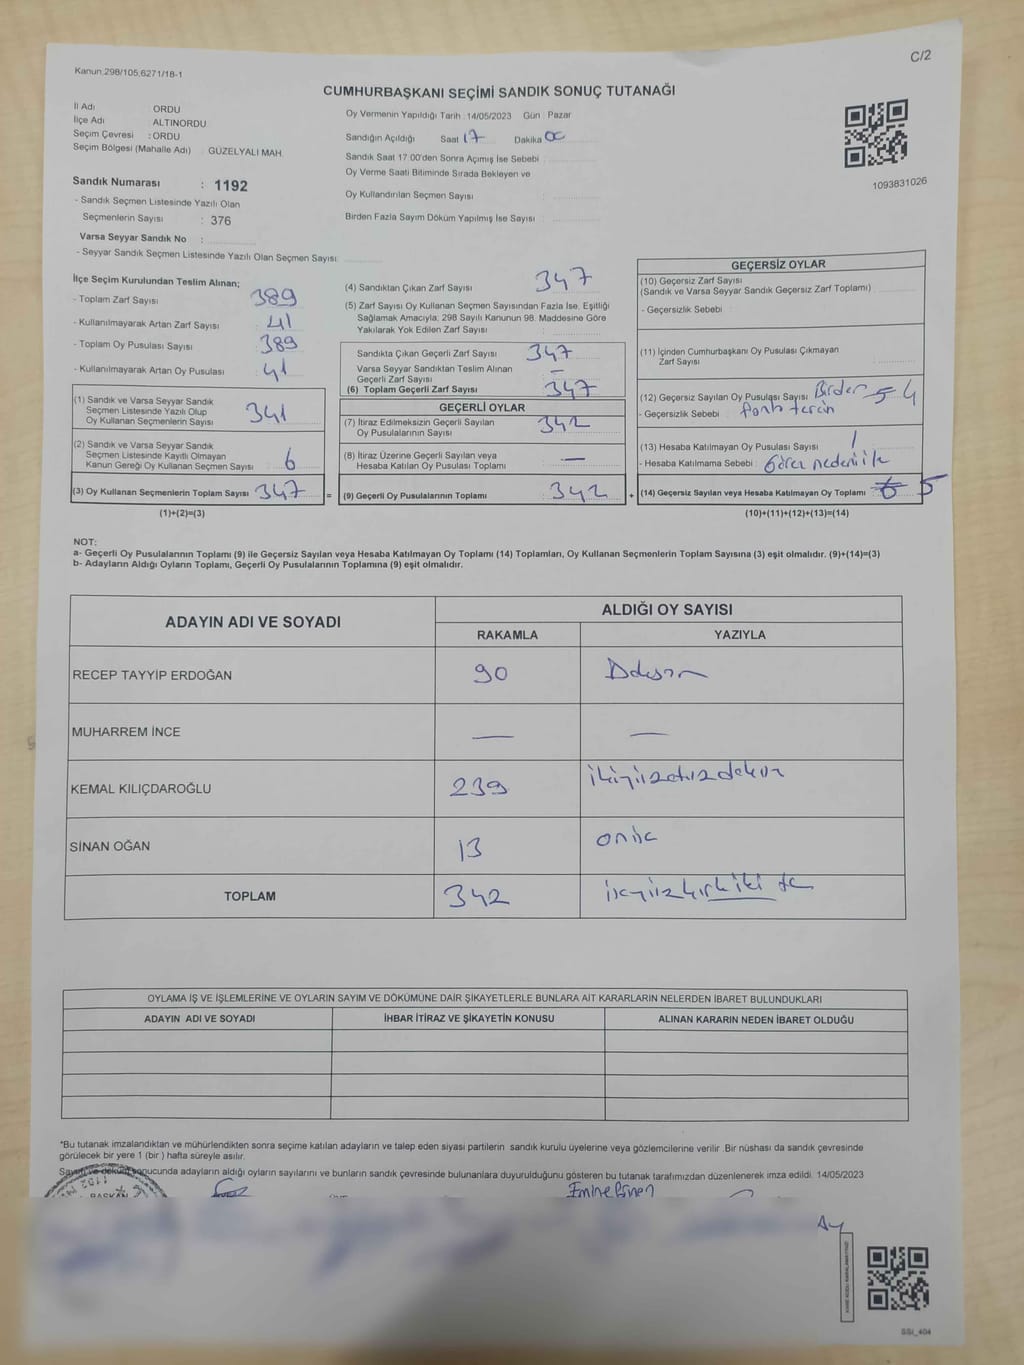 Kanun:298/105,6271/18-1
C/2
CUMHURBAŞKANI SEÇİMİ SANDIK SONUÇ TUTANAĞI
İl Adı ORDU
İlçe Adı ALTINORDU
Seçim Çevresi : ORDU
Seçim Bölgesi (Mahalle Adı) : GÜZELYALI MAH.
Sandık Numarası : 1192
- Sandık Seçmen Listesinde Yazılı Olan
Seçmenlerin Sayısı : 376
Varsa Seyyar Sandık No :
- Seyyar Sandık Seçmen Listesinde Yazılı Olan Seçmen Sayısı:
Oy Vermenin Yapıldığı Tarih : 14/05/2023 Gün : Pazar
Sandığın Açıldığı Saat 17 Dakika 00
Sandık Saat 17:00'den Sonra Açımış İse Sebebi
Oy Verme Saati Bitiminde Sırada Bekleyen ve
Oy Kullandırılan Seçmen Sayısı
Birden Fazla Sayım Döküm Yapılmış İse Sayısı :
1093831026
İlçe Seçim Kurulundan Teslim Alınan;
- Toplam Zarf Sayısı 389
- Kullanılmayarak Artan Zarf Sayısı 41
- Toplam Oy Pusulası Sayısı 389
- Kullanılmayarak Artan Oy Pusulası 41
(1) Sandık ve Varsa Seyyar Sandık
Seçmen Listesinde Yazılı Olup
Oy Kullanan Seçmenlerin Sayısı 341
(2) Sandık ve Varsa Seyyar Sandık
Seçmen Listesinde Kayıtlı Olmayan
Kanun Gereği Oy Kullanan Seçmen Sayısı 6
(3) Oy Kullanan Seçmenlerin Toplam Sayısı 347 =
(1)+(2)=(3)
(4) Sandıktan Çıkan Zarf Sayısı 347
(5) Zarf Sayısı Oy Kullanan Seçmen Sayısından Fazla İse, Eşitliği
Sağlamak Amacıyla; 298 Sayılı Kanunun 98. Maddesine Göre
Yakılarak Yok Edilen Zarf Sayısı
Sandıkta Çıkan Geçerli Zarf Sayısı 347
Varsa Seyyar Sandıktan Teslim Alınan
Geçerli Zarf Sayısı —
(6) Toplam Geçerli Zarf Sayısı 347
GEÇERLİ OYLAR
(7) İtiraz Edilmeksizin Geçerli Sayılan
Oy Pusulalarının Sayısı 342
(8) İtiraz Üzerine Geçerli Sayılan veya
Hesaba Katılan Oy Pusulası Toplamı —
(9) Geçerli Oy Pusulalarının Toplamı 342 +
GEÇERSİZ OYLAR
(10) Geçersiz Zarf Sayısı
(Sandık ve Varsa Seyyar Sandık Geçersiz Zarf Toplamı)
- Geçersizlik Sebebi
(11) İçinden Cumhurbaşkanı Oy Pusulası Çıkmayan
Zarf Sayısı
(12) Geçersiz Sayılan Oy Pusulası Sayısı Birden 5 4
- Geçersizlik Sebebi :
(13) Hesaba Katılmayan Oy Pusulası Sayısı 1
- Hesaba Katılmama Sebebi :
(14) Geçersiz Sayılan veya Hesaba Katılmayan Oy Toplamı 6 5
(10)+(11)+(12)+(13)=(14)
NOT:
a- Geçerli Oy Pusulalarının Toplamı (9) ile Geçersiz Sayılan veya Hesaba Katılmayan Oy Toplamı (14) Toplamları, Oy Kullanan Seçmenlerin Toplam Sayısına (3) eşit olmalıdır. (9)+(14)=(3)
b- Adayların Aldığı Oyların Toplamı, Geçerli Oy Pusulalarının Toplamına (9) eşit olmalıdır.
ADAYIN ADI VE SOYADI
ALDIĞI OY SAYISI
RAKAMLA YAZIYLA
RECEP TAYYİP ERDOĞAN 90 Doksan
MUHARREM İNCE — —
KEMAL KILIÇDAROĞLU 239 ikiyüzotuzdokuz
SİNAN OĞAN 13 onüç
TOPLAM 342 üçyüzkırkiki
OYLAMA İŞ VE İŞLEMLERİNE VE OYLARIN SAYIM VE DÖKÜMÜNE DAİR ŞİKAYETLERLE BUNLARA AİT KARARLARIN NELERDEN İBARET BULUNDUKLARI
ADAYIN ADI VE SOYADI İHBAR İTİRAZ VE ŞİKAYETİN KONUSU ALINAN KARARIN NEDEN İBARET OLDUĞU
*Bu tutanak imzalandıktan ve mühürlendikten sonra seçime katılan adayların ve talep eden siyasi partilerin sandık kurulu üyelerine veya gözlemcilerine verilir. Bir nüshası da sandık çevresinde
görülecek bir yere 1 (bir) hafta süreyle asılır.
Sayım ve döküm sonucunda adayların aldığı oyların sayılarını ve bunların sandık çevresinde bulunanlara duyurulduğunu gösteren bu tutanak tarafımızdan düzenlenerek imza edildi. 14/05/2023
1192
BAŞKAN
SSI_404